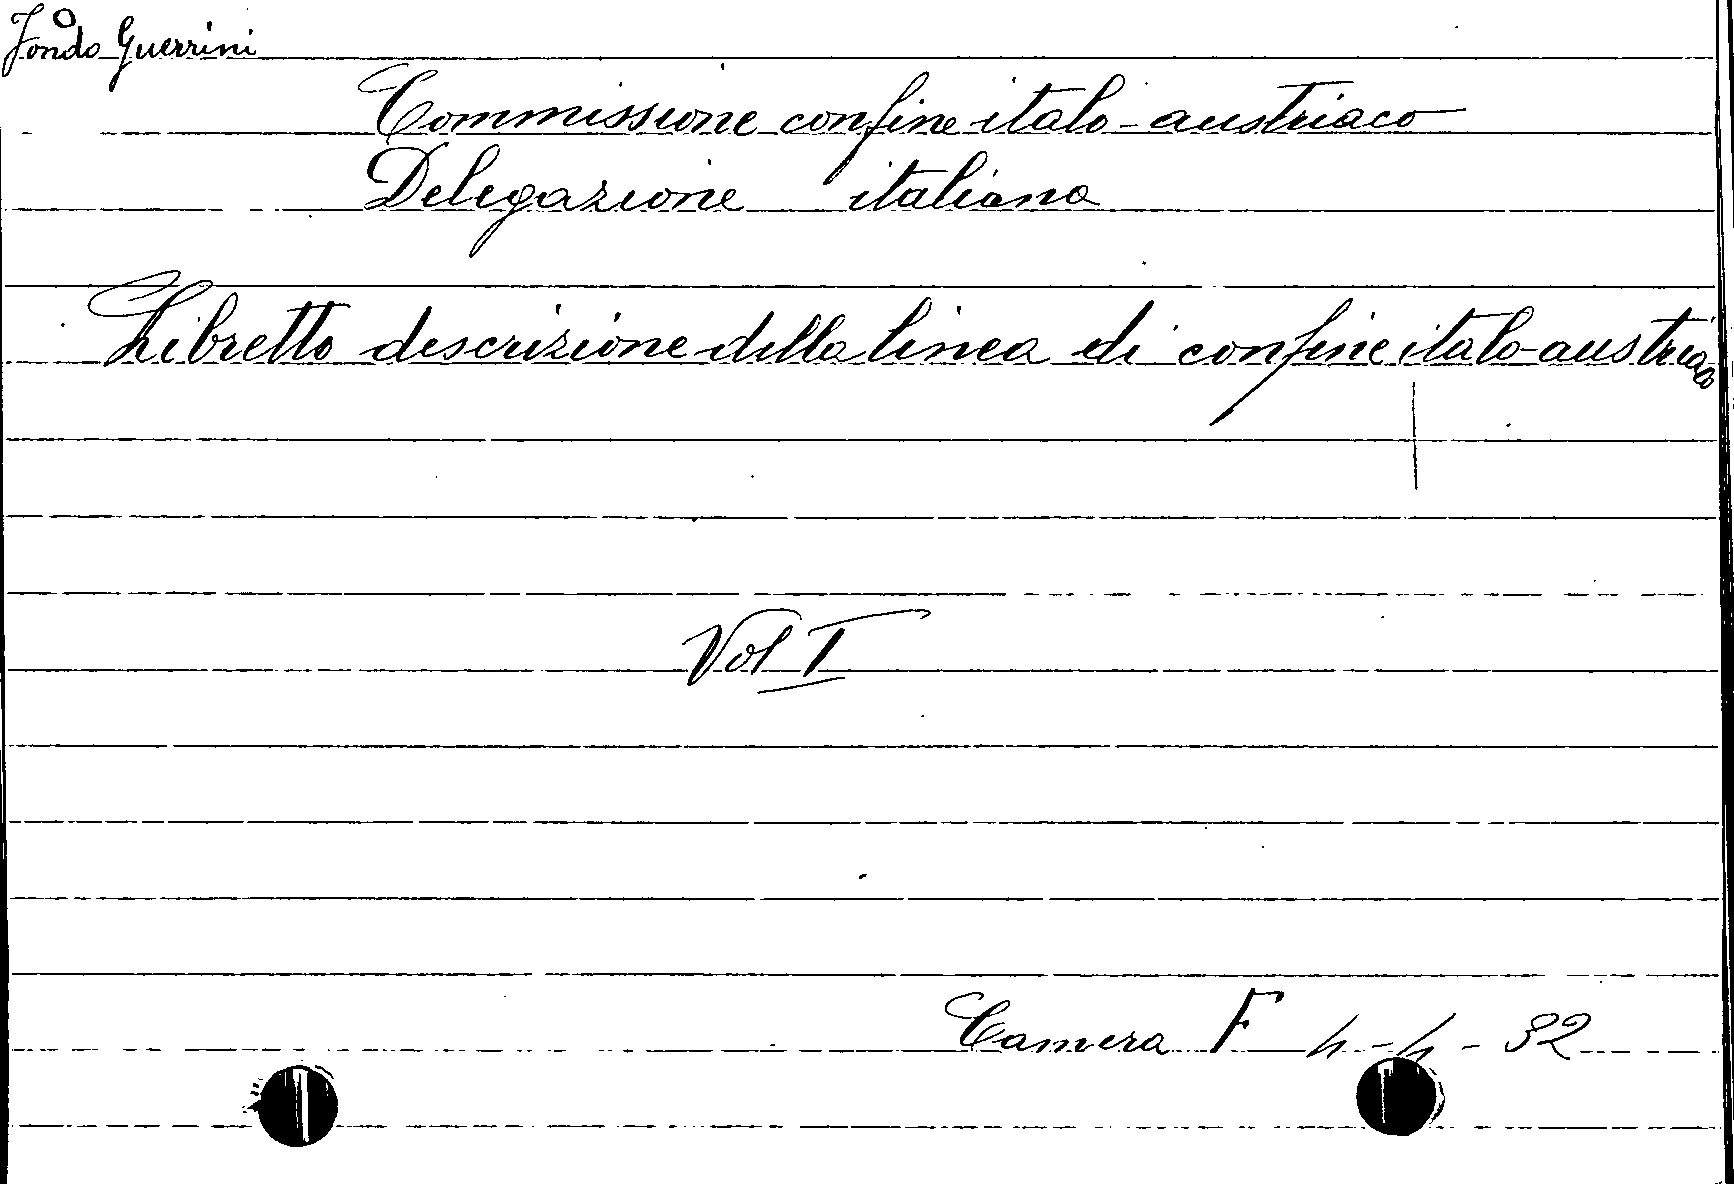 Fondo Guerrini
Commissione confine italo-austriaco
Delegazione italiana
Libretto descrizione della linea di confine italo-austriaco
Vol I
Camera F 4-4-32